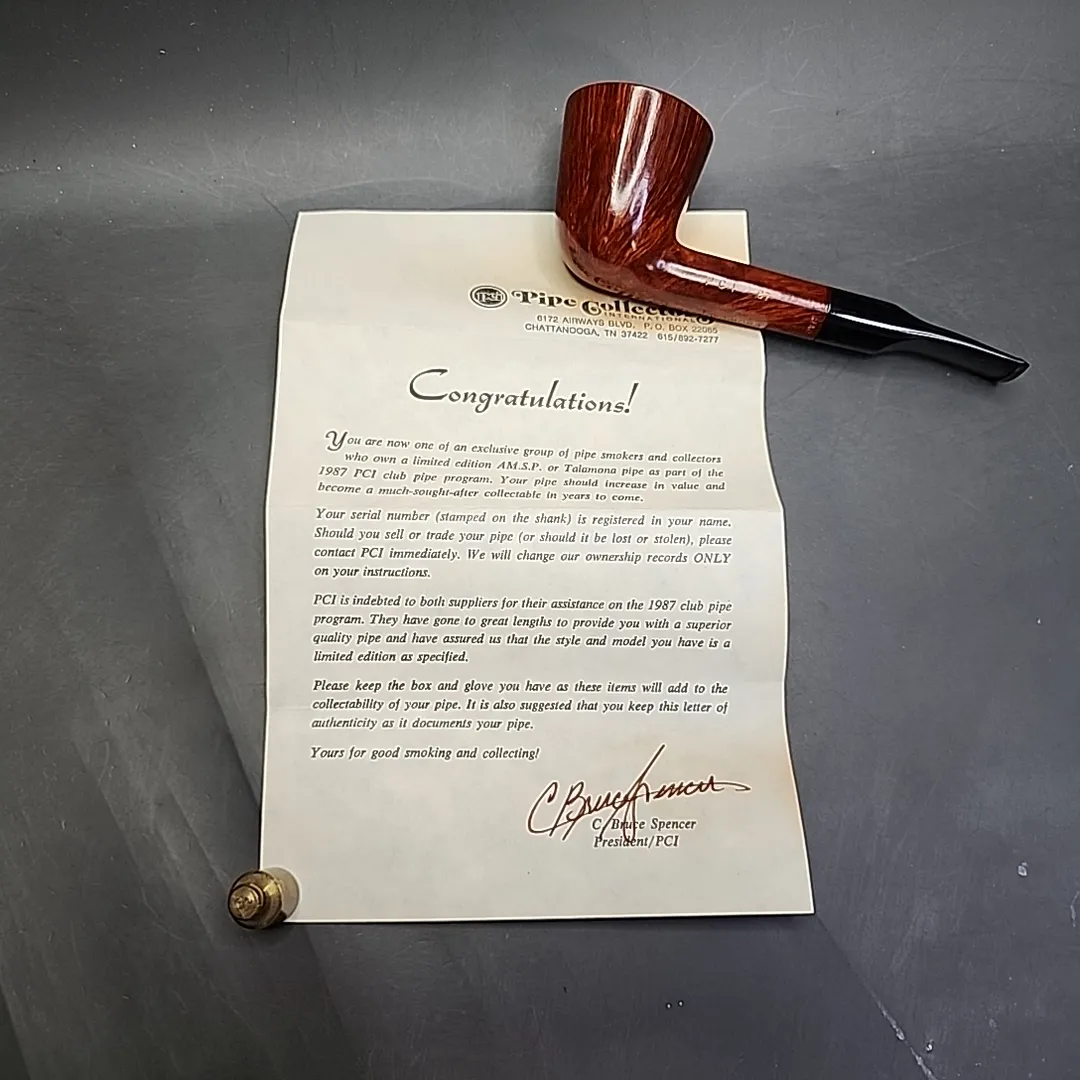 PCI
Pipe Collectors
INTERNATIONAL
6172 AIRWAYS BLVD. P.O. BOX 22085
CHATTANOOGA, TN 37422 615/892-7277
Congratulations!
You are now one of an exclusive group of pipe smokers and collectors
who own a limited edition AM.S.P. or Talamona pipe as part of the
1987 PCI club pipe program. Your pipe should increase in value and
become a much-sought-after collectable in years to come.
Your serial number (stamped on the shank) is registered in your name.
Should you sell or trade your pipe (or should it be lost or stolen), please
contact PCI immediately. We will change our ownership records ONLY
on your instructions.
PCI is indebted to both suppliers for their assistance on the 1987 club pipe
program. They have gone to great lengths to provide you with a superior
quality pipe and have assured us that the style and model you have is a
limited edition as specified.
Please keep the box and glove you have as these items will add to the
collectability of your pipe. It is also suggested that you keep this letter of
authenticity as it documents your pipe.
Yours for good smoking and collecting!
C Bruce Spencer
C. Bruce Spencer
President/PCI